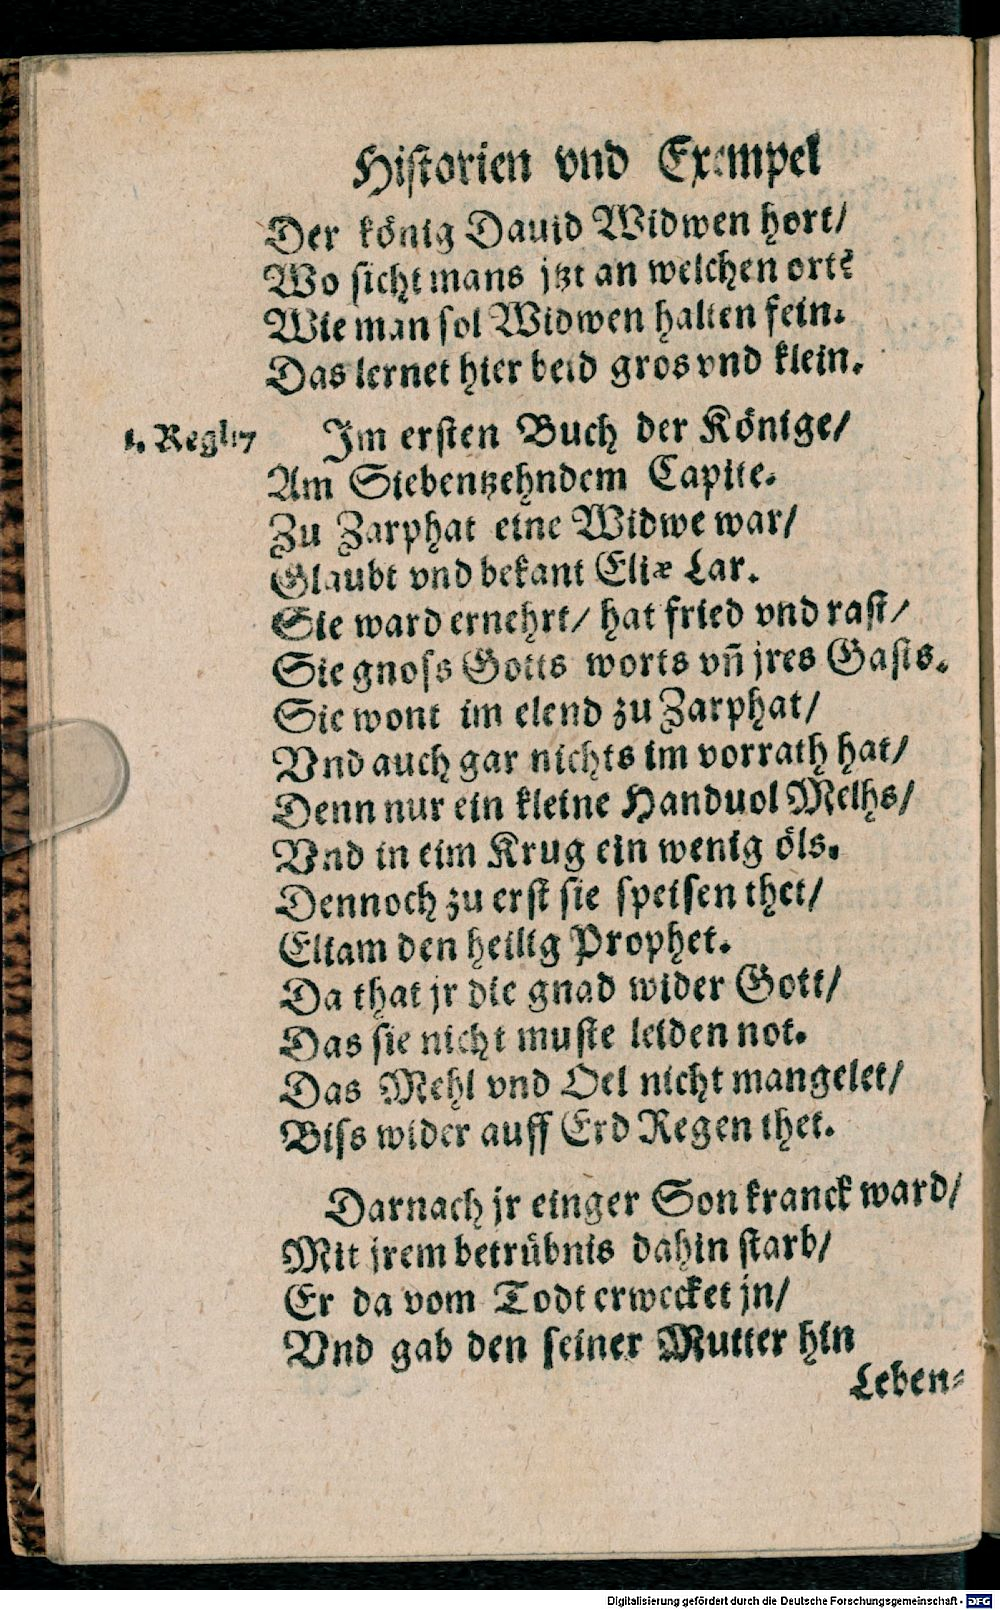 Historien vnd Exempel
Der könig Dauid Widwen hort/
Wo sicht mans jtzt an welchen ortẽ
Wie man sol Widwen halten fein.
Das lernet hier beid gros vnd klein.
1. Reg. 17
Im ersten Buch der Könige/
Am Siebentzehndem Capite.
Zu Zarphat eine Widwe war/
Glaubt vnd bekant Eliæ Lar.
Sie ward ernehrt/ hat fried vnd rast/
Sie gnoss Gotts worts vñ jres Gasts.
Sie wont im elend zu Zarphat/
Vnd auch gar nichts im vorrath hat/
Denn nur ein kleine Handuol Melhs/
Vnd in eim Krug ein wenig öls.
Dennoch zu erst sie speisen thet/
Eliam den heilig Prophet.
Da that jr die gnad wider Gott/
Das sie nicht muste leiden not.
Das Mehl vnd Oel nicht mangelet/
Biss wider auff Erd Regen thet.
Darnach jr einger Son kranck ward/
Mit jrem betrübnis dahin starb/
Er da vom Todt erwecket jn/
Vnd gab den seiner Mutter hin
Leben-
Digitalisierung gefördert durch die Deutsche Forschungsgemeinschaft - DFG